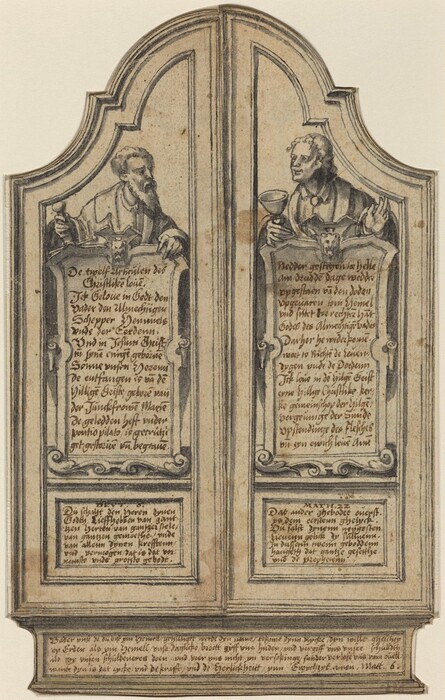 De twelf Articulen des
Christlike loue.
Ick Geloue in Godt den
Vader den Almechtigen
Schepper Hemmels
vnde der Eerdenn.
Vnd in Jesum Christ
synen gebaren
Sonne vnsen Heren
de entfangen is van dē
Hilligē Geiste gebore van
der Junckfrowen Maria
de geledden heft vnder
pontio pilato, is gecruti
get, gestoruē vn begrauē
Nedder gestegen in helle
am drudde dage wedder
vpgestaen vā den doden
vpgeuaren ym Hemel
vnd sittet tor rechter hāt
Godes des Almechtigē vaders
Dar her he wedderkomē
wert to Richtē de leuen
dygen vnde de Dodenn
Ick loue in dē hilgē Geist
eyne hillige Christlike ker
cke gemeinschop der hilgē
vergeuinge der sunde
vpstandinge des Flesches
vn eyn ewich leuē Amē
DEVT. 6.
Du schalt den Heren dynen
Godt Lieffhebben van gant
zen Herten van gantzer sele
van gantzen gemoethe vnde
van allem dynen krefften
vnd vermogen dat is dat vor
nemste vnde groste gebodt.
MATH. 22
Dat ander ghebodt ouerst
ys dem ersten ghelyck.
Du salst dynem negesten
lieuen gelick dy suluenn.
In dussenn tween gebodenn
hanget dat gantze gesette
vnd de Prophetenn
Vader vnse de du bist ym Hemel gehilliget werde dyn name, thokome dyn Rycke, dyn wille gheschee
vp Erden als ym Hemell, vnse daglicke broet gyff vns huden vnd vorgiff vns vnse schulde
als wy vnsen schuldeners doen vnd voer vns nicht yn versokinge sunder verlose vns van ouell
wente dyn is dat rycke vnd de krafft vnd de Herlicheit yn Ewicheit. amen. Math. 6.